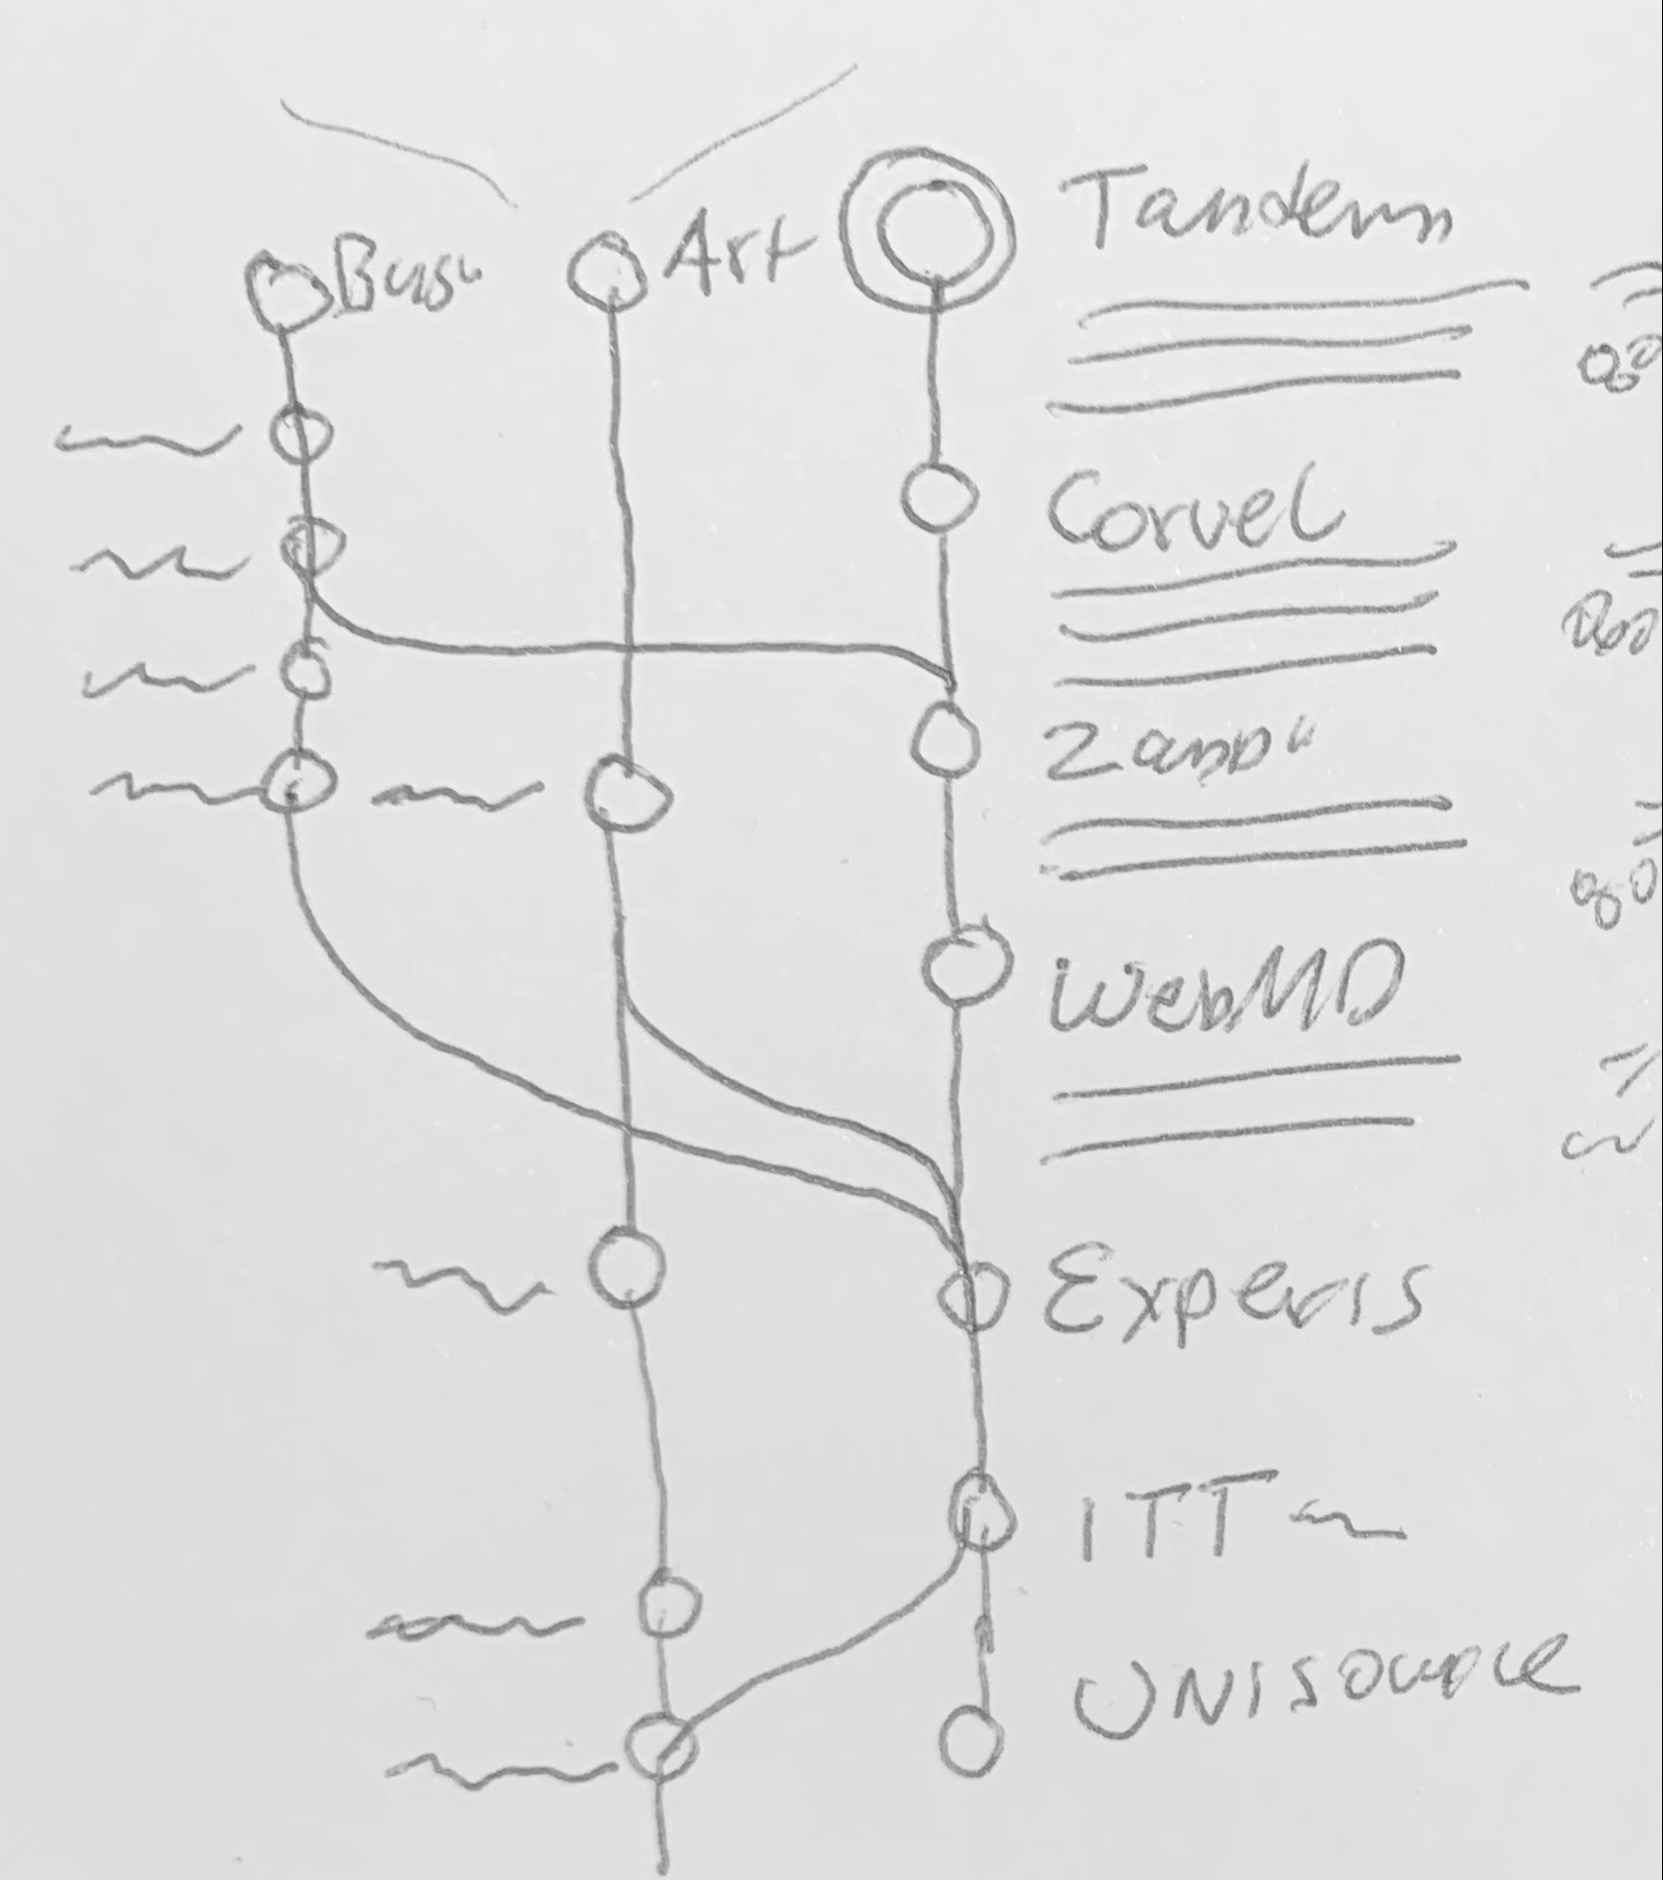 Bus" Art Tandem
Corvel
Zapp"
WebMD
Experis
ITT
UNISOURCE